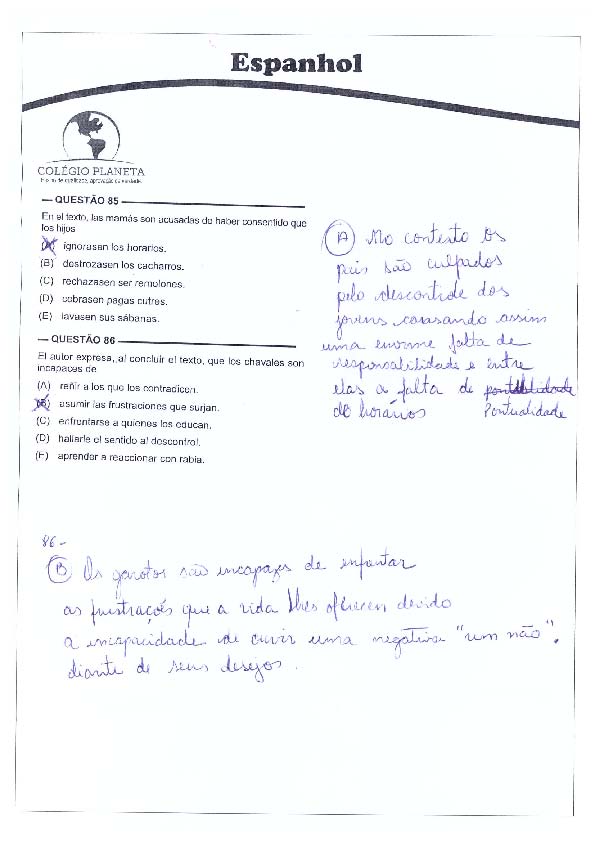 Espanhol
COLÉGIO PLANETA
QUESTÃO 85
En el texto, las mamás son acusadas de haber consentido que
los hijos
(A) ignorasen los horarios.
(B) destrozasen los cacharros.
(C) rechazasen ser remolones.
(D) cobrasen pagas cutres.
(E) lavasen sus sábanas.
QUESTÃO 86
El autor expresa, al concluir el texto, que los chavales son
incapaces de
(A) reñir a los que los contradicen.
(B) asumir las frustraciones que surjan.
(C) enfrentarse a quienes los educan.
(D) hallarle el sentido al descontrol.
(E) aprender a reaccionar con rabia.
(A) No contexto os
pais são culpados
pelo descontrole dos
jovens causando assim
uma enorme falta de
responsabilidade e entre
elas a falta de
de horários Pontualidade
86 -
(B) Os garotos são incapazes de enfrentar
as frustrações que a vida lhes oferecen devido
a incapacidade de ouvir uma negativa "um não".
diante de seus desejos.